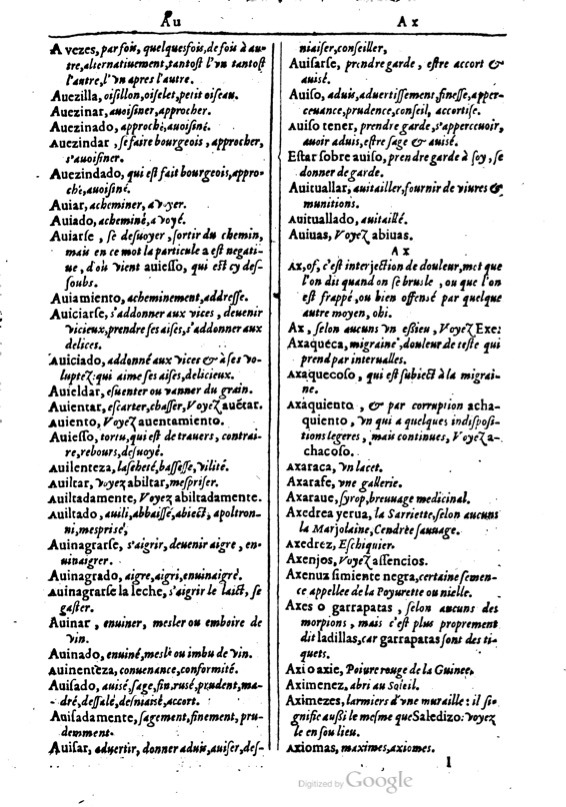 Au
Ax
A vezes, par fois, quelquesfois, de fois à au-
tre, alternatiuement, tantost l'vn tantost
l'autre, l'vn apres l'autre.
Auezilla, oisillon, oiselet, petit oiseau.
Auezinar, auoisiner, approcher.
Auezinado, approché, auoisiné.
Auezindar, se faire bourgeois, approcher,
s'auoisiner.
Auezindado, qui est fait bourgeois, appro-
ché, auoisiné.
Auiar, acheminer, a voyer.
Auiado, acheminé, a voyé.
Auiarse, se desuoyer, sortir du chemin,
mais en ce mot la particule a est negati-
ue, d'où vient auiesso, qui est cy des-
soubs.
Auiamiento, acheminement, addresse.
Auiciarse, s'addonner aux vices, deuenir
vicieux, prendre ses aises, s'addonner aux
delices.
Auiciado, addonné aux vices & à ses vo-
luptez: qui aime ses aises, delicieux.
Auieldar, esuenter ou vanner du grain.
Auientar, escarter, chasser, Voyez auētar.
Auiento, Voyez auentamiento.
Auiesso, tortu, qui est de trauers, contrai-
re, rebours, desuoyé.
Auilenteza, lascheté, bassesse, vilité.
Auiltar, voyez abiltar, mespriser.
Auiltadamente, Voyez abiltadamente.
Auiltado, auili, abbaissé, abiect, apoltron-
ni, mesprisé,
Auinagrarse, s'aigrir, deuenir aigre, en-
uinaigrer.
Auinagrado, aigre, aigri, enuinaigré.
Auinagrarse la leche, s'aigrir le laict, se
gaster.
Auinar, enuiner, mesler ou emboire de
vin.
Auinado, enuiné, meslé ou imbu de vin.
Auinenteza, conuenance, conformité.
Auisado, auisé, sage, fin, rusé, prudent, ma-
dré, dessalé, desniaisé, accort.
Auisadamente, sagement, finement, pru-
demment.
Auisar, aduertir, donner aduis, auiser, des-
niaiser, conseiller,
Auisarse, prendre garde, estre accort &
auisé.
Auiso, aduis, aduertissement, finesse, apper-
ceuance, prudence, conseil, accortise.
Auiso tener, prendre garde, s'apperceuoir,
auoir aduis, estre sage & auisé.
Estar sobre auiso, prendre garde à soy, se
donner de garde.
Auituallar, auitailler, fournir de viures &
munitions.
Auituallado, auitaillé.
Auiuas, Voyez abiuas.
A x
Ax, of, c'est interjection de douleur, mot que
l'on dit quand on se brusle, ou que l'on
est frappé, ou bien offensé par quelque
autre moyen, ohi.
Ax, selon aucuns vn essieu, Voyez Exe:
Axaqueca, migraine, douleur de teste qui
prend par interualles.
Axaquecoso, qui est subiect à la migrai-
ne.
Axaquiento, & par corruption acha-
quiento, vn qui a quelques indisposi-
tions legeres, mais continues, Voyez a-
chacoso.
Axaraca, vn lacet.
Axarafe, vne gallerie.
Axaraue, syrop, breuuage medicinal.
Axedrea yerua, la Sarriette, selon aucuns
la Marjolaine, Cendrée sauuage.
Axedrez, Eschiquier.
Axenjos, Voyez assencios.
Axenuz simiente negra, certaine semen-
ce appellee de la Poyurette ou nielle.
Axes o garrapatas, selon aucuns des
morpions, mais c'est plus proprement
dit ladillas, car garrapatas sont des ti-
quets.
Axi o axie, Poiure rouge de la Guinee,
Aximenez, abri au Soleil.
Aximezes, larmiers d'vne muraille: il si-
gnifie aussi le mesme que Saledizo: voyez
le en son lieu.
Axiomas, maximes, axiomes.
I
Digitized by Google